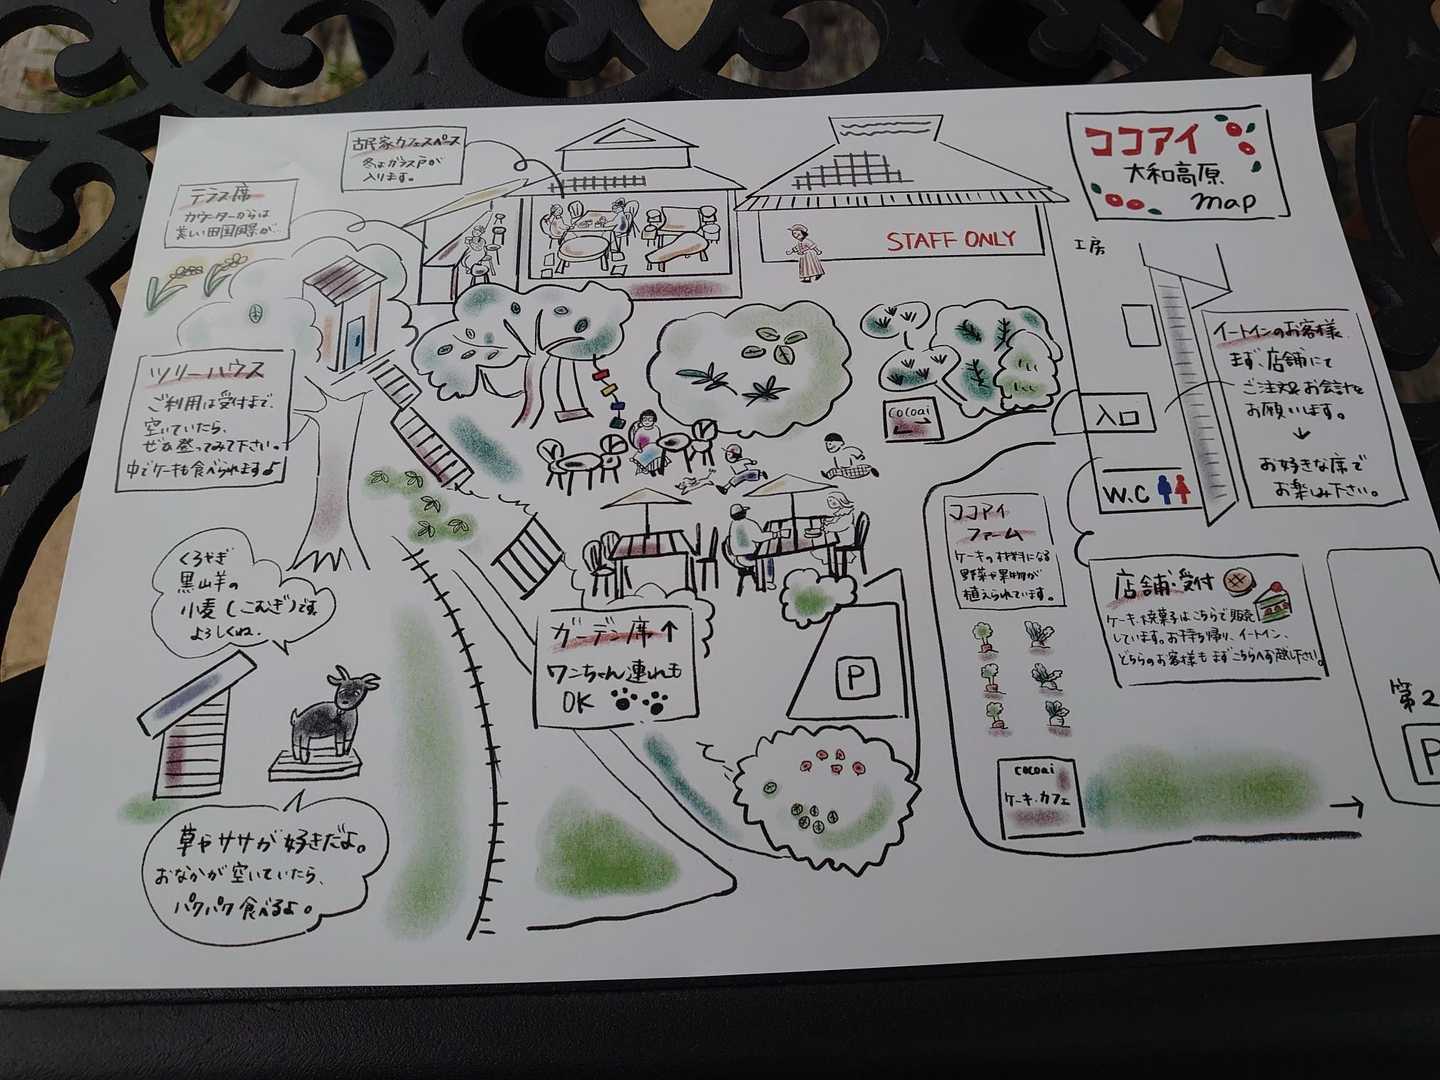 ココアイ
大和高原
map
古民家カフェスペース
冬はガラス戸が
入ります。
テラス席
カウンターからは
美しい田園風景が…
STAFF ONLY
工房
イートインのお客様
まず、店舗にて
ご注文とお会計を
お願いします。
↓
お好きな席で
お楽しみ下さい。
入口
W.C
ツリーハウス
ご利用は受付まで、
空いていたら、
ぜひ登ってみて下さい。
中でケーキも食べられますよ
cocoai
ココアイ
ファーム
ケーキの材料になる
野菜や果物が
植えられています。
店舗・受付
ケーキ、焼菓子はこちらで販売
しています。お持ち帰り、イートイン、
どちらのお客様もまずこちらへお越し下さい。
くろやぎ
黒山羊の
小麦(こむぎ)です。
よろしくね。
ガーデン席↑
ワンちゃん連れも
OK
P
第2
P
cocoai
ケーキ・カフェ
→
草やササが好きだよ。
おなかが空いていたら、
パクパク食べるよ。